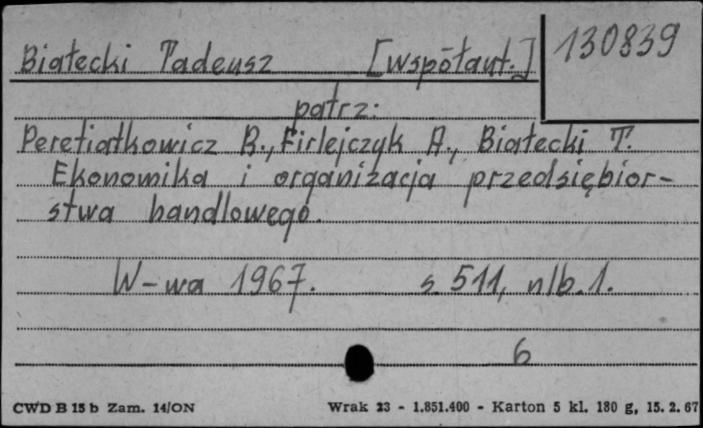 Białecki Tadeusz [współaut.] 130839
patrz:
Peretiatkowicz B., Firlejczyk A., Białecki T.
Ekonomika i organizacja przedsiębior-
stwa handlowego.
W-wa 1967. s. 511, nlb. 1.
6
CWD B 15 b Zam. 14/ON Wrak 23 - 1.851.400 - Karton 5 kl. 180 g, 15. 2. 67